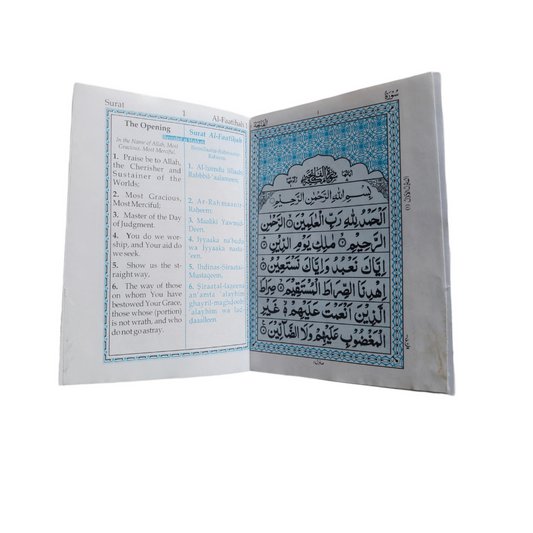 Surat 1 Al-Faatihah 1
The Opening
in the Name of Allah, Most
Gracious, Most Merciful.
1. Praise be to Allah,
the Cherisher and
Sustainer of the
Worlds;
2. Most Gracious,
Most Merciful;
3. Master of the Day
of Judgment.
4. You do we wor-
ship, and Your aid do
we seek.
5. Show us the st-
raight way,
6. The way of those
on whom You have
bestowed Your Grace,
those whose (portion)
is not wrath, and who
do not go astray.
Surat Al-Faatihah
Bismillaahir-Rahmaanir
Raheem
1. Al-hamdu lillaahi
Rabbil-'aalameen;
2. Ar-Rahmaanir-
Raheem;
3. Maaliki Yawmid-
Deen.
4. Iyyaaka na'budu
wa iyyaaka nasta
'een.
5. Ihdinas-Siraatal-
Mustaqeem,
6. Siraatal-lazeena
an'amta 'alayhim
ghayril-maghdoobi
'alayhim wa lad-
daaalleen.
سورة
1
بسم الله الرحمن الرحيم
الحمد لله رب العلمين الرحمن
الرحيم ملك يوم الدين
اياك نعبد واياك نستعين
اهدنا الصراط المستقيم صراط
الذين انعمت عليهم غير
المغضوب عليهم ولا الضالين